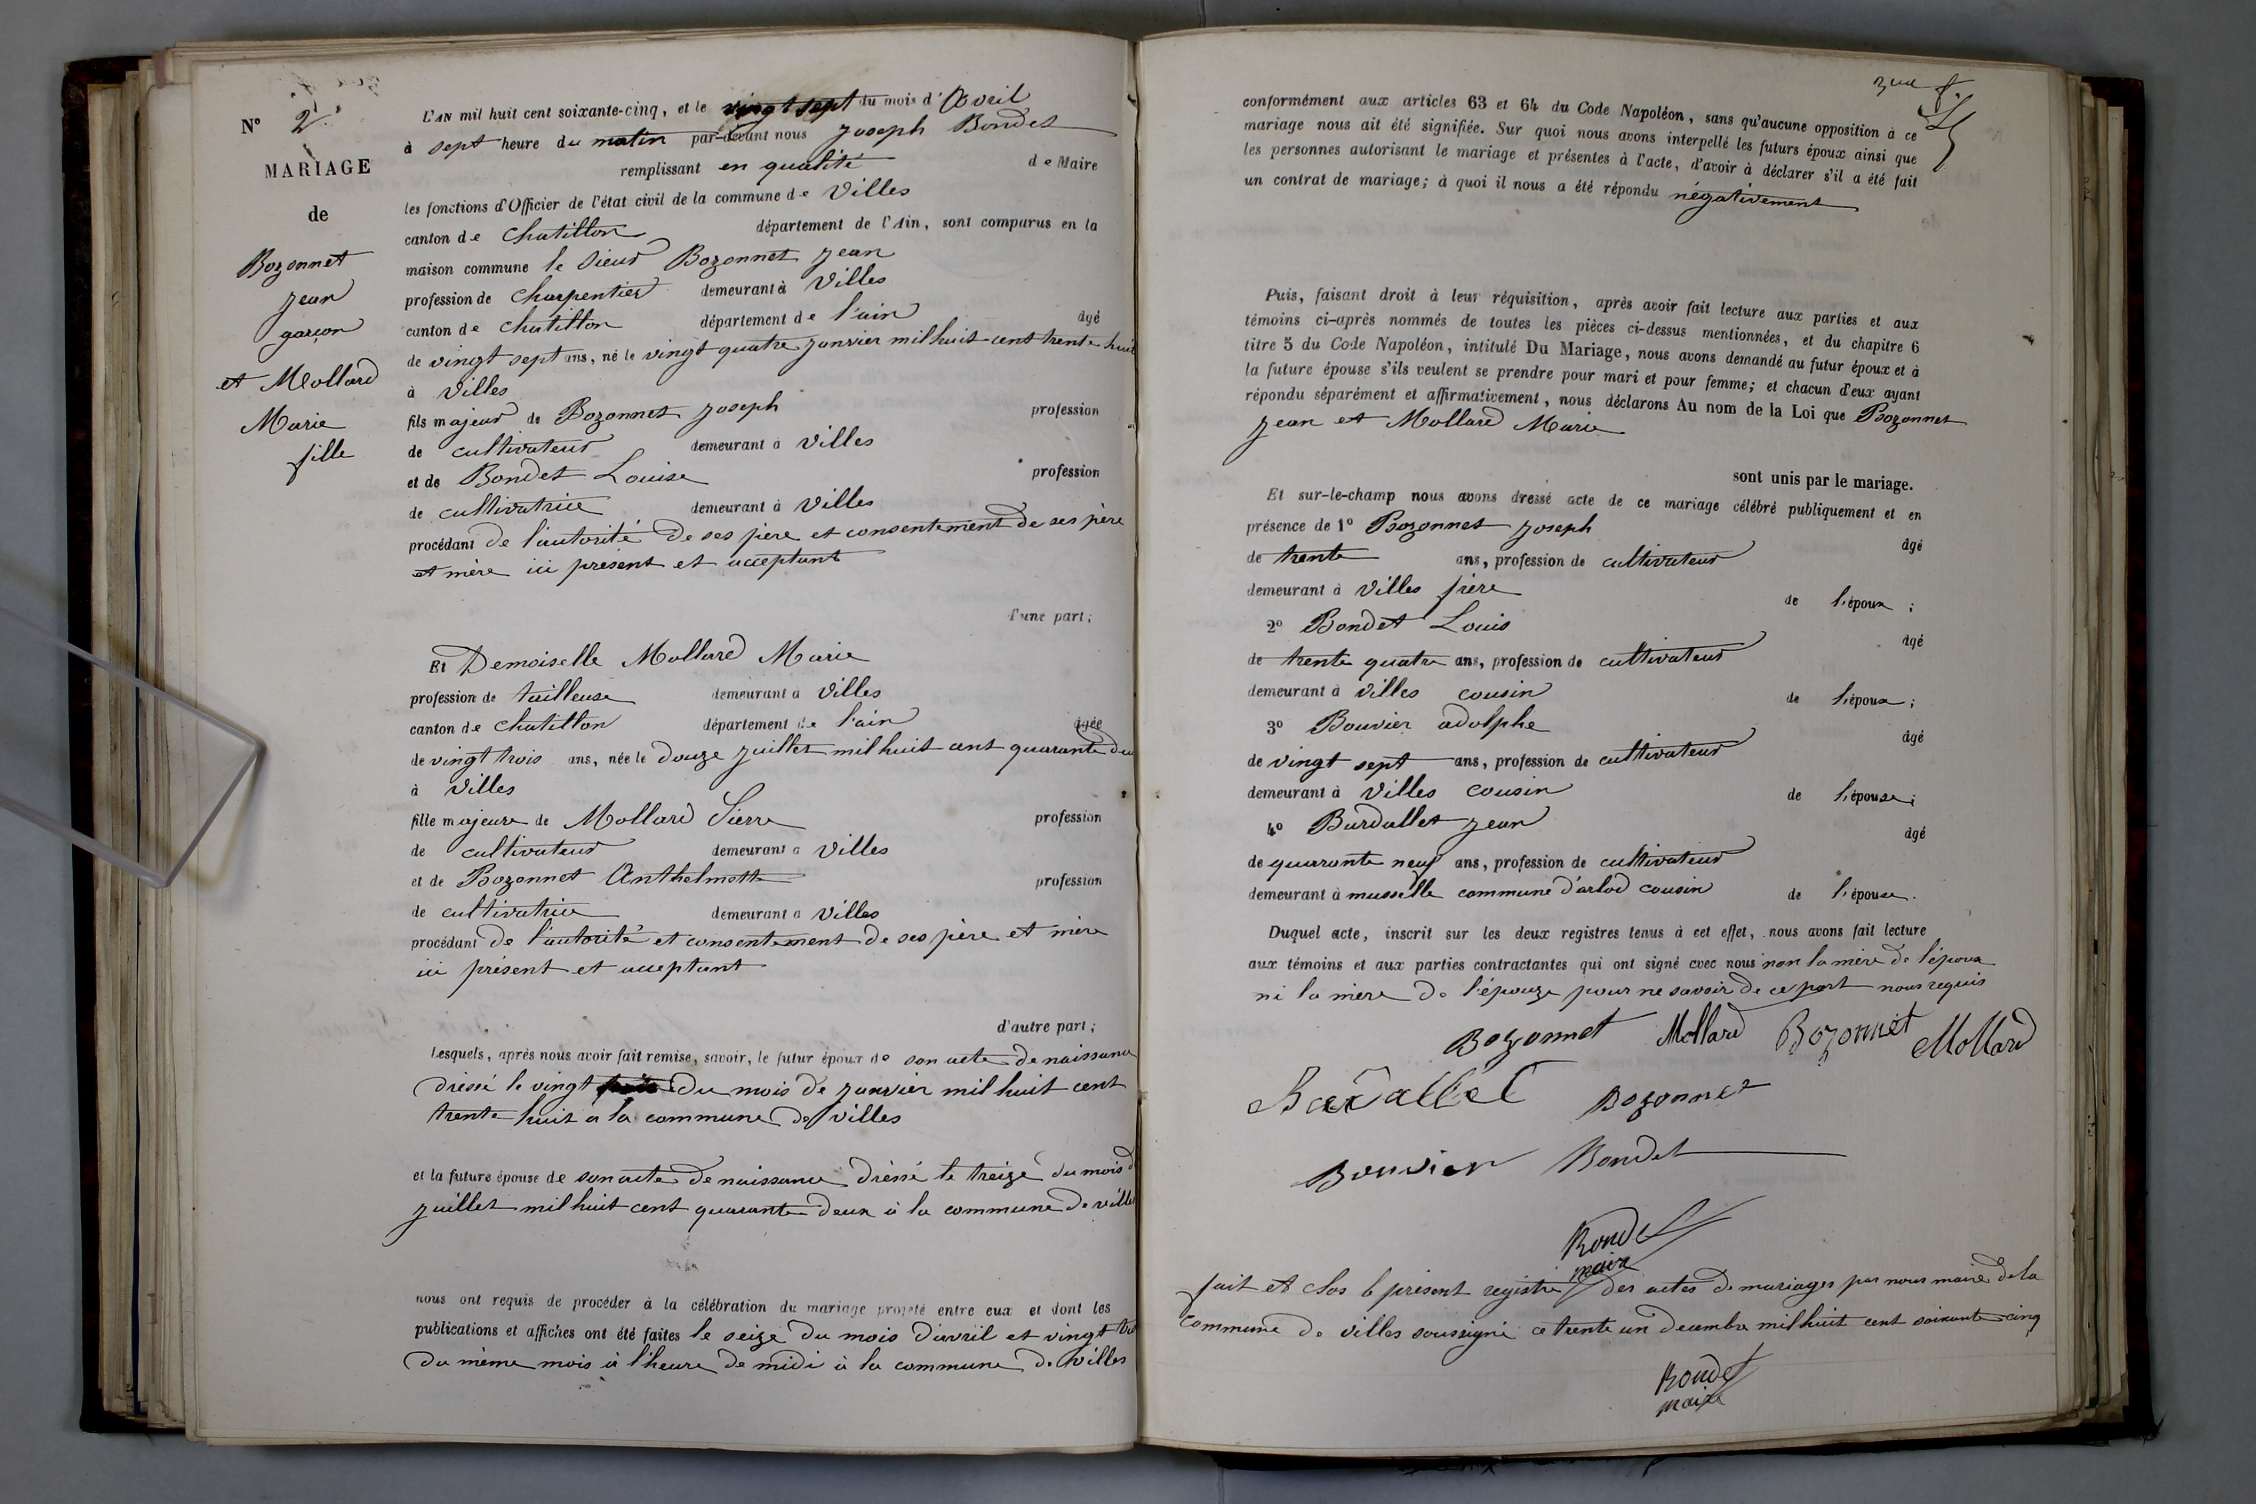 N° 2
MARIAGE
de
Bozonnet
Jean
garçon
et Mollard
Marie
fille
L'AN mil huit cent soixante-cinq, et le vingt sept du mois d'Avril
à sept heure du matin par-devant nous Joseph Bondet
remplissant en qualité de Maire
les fonctions d'Officier de l'état civil de la commune de Villes
canton de chatillon département de l'Ain, sont comparus en la
maison commune le sieur Bozonnet Jean
profession de charpentier demeurant à Villes
canton de chatillon département de l'ain âgé
de vingt sept ans, né le vingt quatre janvier mil huit cent trente huit
à Villes
fils majeur de Bozonnet Joseph profession
de cultivateur demeurant à Villes
et de Bondet Louise profession
de cultivatrice demeurant à Villes
procédant de l'autorité de ses père et consentement de ses père
et mère ici présent et acceptant
d'une part;
Et Demoiselle Mollard Marie
profession de tailleuse demeurant à Villes
canton de chatillon département de l'ain âgée
de vingt trois ans, née le douze juillet mil huit cent quarante deu
à Villes
fille majeure de Mollard Pierre profession
de cultivateur demeurant à Villes
et de Bozonnet Anthelmette profession
de cultivatrice demeurant à Villes
procédant de l'autorité et consentement de ses père et mère
ici présent et acceptant
d'autre part;
Lesquels, après nous avoir fait remise, savoir, le futur époux de son acte de naissance
dréssé le vingt du mois de janvier mil huit cent
trente huit à la commune de villes
et la future épouse de son acte de naissance dréssé le treize du mois d
juillet mil huit cent quarante deux à la commune de villes
nous ont requis de procéder à la célébration du mariage projeté entre eux et dont les
publications et affiches ont été faites le seize du mois d'avril et vingt
du même mois à l'heure de midi à la commune de Villes
conformément aux articles 63 et 64 du Code Napoléon, sans qu'aucune opposition à ce
mariage nous ait été signifiée. Sur quoi nous avons interpellé les futurs époux ainsi que
les personnes autorisant le mariage et présentes à l'acte, d'avoir à déclarer s'il a été fait
un contrat de mariage; à quoi il nous a été répondu négativement
Puis, faisant droit à leur réquisition, après avoir fait lecture aux parties et aux
témoins ci-après nommés de toutes les pièces ci-dessus mentionnées, et du chapitre 6
titre 5 du Code Napoléon, intitulé Du Mariage, nous avons demandé au futur époux et à
la future épouse s'ils veulent se prendre pour mari et pour femme; et chacun d'eux ayant
répondu séparément et affirmativement, nous déclarons Au nom de la Loi que Bozonnet
Jean et Mollard Marie
sont unis par le mariage.
Et sur-le-champ nous avons dressé acte de ce mariage célébré publiquement et en
présence de 1° Bozonnet Joseph âgé
de trente ans, profession de cultivateur
demeurant à Villes frère de l'époux;
2° Bondet Louis âgé
de trente quatre ans, profession de cultivateur
demeurant à Villes cousin de l'époux;
3° Bouvier adolphe âgé
de vingt sept ans, profession de cultivateur
demeurant à Villes cousin de l'épouse;
4° Bardallet Jean âgé
de quarante neuf ans, profession de cultivateur
demeurant à musselle commune d'arlod cousin de l'épouse.
Duquel acte, inscrit sur les deux registres tenus à cet effet, nous avons fait lecture
aux témoins et aux parties contractantes qui ont signé avec nous non la mère de l'époux
ni la mère de l'épouze pour ne savoir de ce part nous requis
Bozonnet Mollard Bozonnet Mollard
Bardallet Bozonnet
Bouvier Bondet
Bondet
maire
fait et clos le présent registre des actes de mariages par nous maire de la
commune de Villes soussigné ce trente un decembre mil huit cent soixante cinq
Bondet
maire